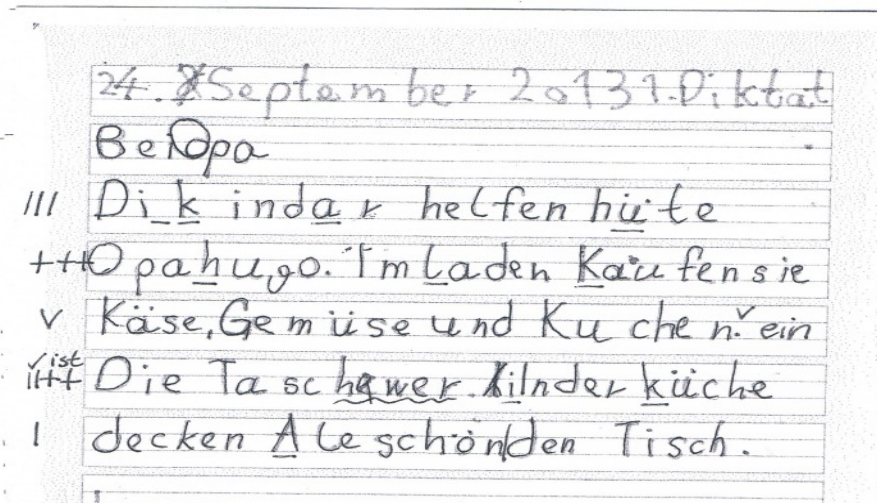 24. September 2013 1. Diktat
Bei Opa
III Di kindar helfen hüte
+++ Opa hugo. Im Laden Kaufen sie
V Käse, Gemüse und Kuchen. ein
ist Die Tasche wer. Kinder küche
I decken Ale schön den Tisch.